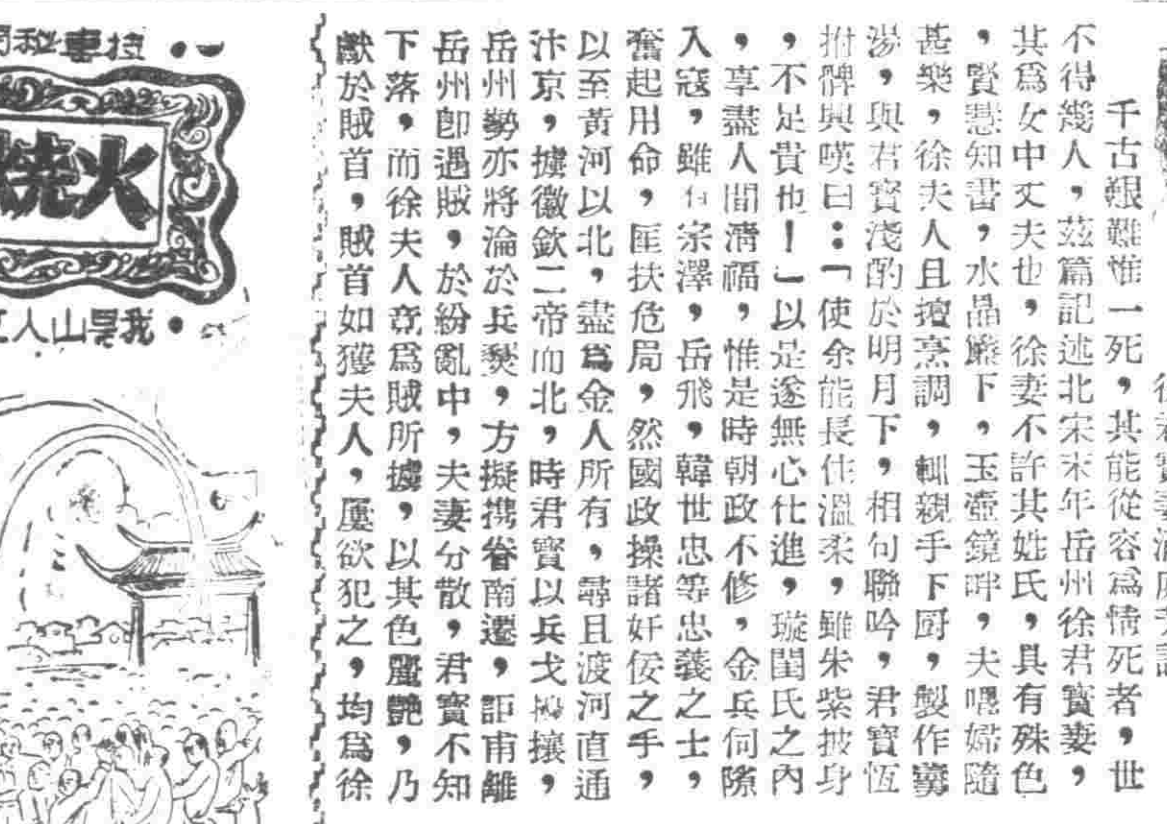 千古艱難惟一死，其能從容爲情死者，世
不得幾人，茲篇記述北宋末年岳州徐君寶妻，
其爲女中丈夫也，徐妻不許其姓氏，具有殊色
，賢慧知書，水晶簾下，玉壺鏡畔，夫唱婦隨
甚樂，徐夫人且擅烹調，輒親手下厨，製作羹
湯，與君寶淺酌於明月下，相句聯吟，君寶恆
拊髀興嘆曰：「使余能長住溫柔，雖朱紫披身
，不足貴也！」以是遂無心仕進，璇閨氏之內
，享盡人間清福，惟是時朝政不修，金兵伺隙
入寇，雖有宗澤，岳飛，韓世忠等忠義之士，
奮起用命，匡扶危局，然國政操諸奸佞之手，
以至黃河以北，盡爲金人所有，尋且渡河直逼
汴京，擄徽欽二帝而北，時君寶以兵戈擾攘，
岳州勢亦將淪於兵燹，方擬携眷南遷，詎甫離
岳州卽遇賊，於紛亂中，夫妻分散，君寶不知
下落，而徐夫人竟爲賊所擄，以其色麗艷，乃
獻於賊首，賊首如獲夫人，屢欲犯之，均爲徐
火燒
我是山人